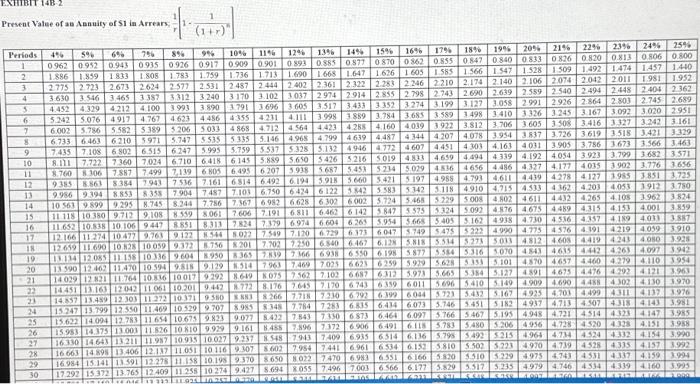 EXHIBIT 14B-2
Present Value of an Annuity of $1 in Arrears; 1/r [1 - 1/(1+r)^n]
Periods 4% 5% 6% 7% 8% 9% 10% 11% 12% 13% 14% 15% 16% 17% 18% 19% 20% 21% 22% 23% 24% 25%
1 0.962 0.952 0.943 0.935 0.926 0.917 0.909 0.901 0.893 0.885 0.877 0.870 0.862 0.855 0.847 0.840 0.833 0.826 0.820 0.813 0.806 0.800
2 1.886 1.859 1.833 1.808 1.783 1.759 1.736 1.713 1.690 1.668 1.647 1.626 1.605 1.585 1.566 1.547 1.528 1.509 1.492 1.474 1.457 1.440
3 2.775 2.723 2.673 2.624 2.577 2.531 2.487 2.444 2.402 2.361 2.322 2.283 2.246 2.210 2.174 2.140 2.106 2.074 2.042 2.011 1.981 1.952
4 3.630 3.546 3.465 3.387 3.312 3.240 3.170 3.102 3.037 2.974 2.914 2.855 2.798 2.743 2.690 2.639 2.589 2.540 2.494 2.448 2.404 2.362
5 4.452 4.329 4.212 4.100 3.993 3.890 3.791 3.696 3.605 3.517 3.433 3.352 3.274 3.199 3.127 3.058 2.991 2.926 2.864 2.803 2.745 2.689
6 5.242 5.076 4.917 4.767 4.623 4.486 4.355 4.231 4.111 3.998 3.889 3.784 3.685 3.589 3.498 3.410 3.326 3.245 3.167 3.092 3.020 2.951
7 6.002 5.786 5.582 5.389 5.206 5.033 4.868 4.712 4.564 4.423 4.288 4.160 4.039 3.922 3.812 3.706 3.605 3.508 3.416 3.327 3.242 3.161
8 6.733 6.463 6.210 5.971 5.747 5.535 5.335 5.146 4.968 4.799 4.639 4.487 4.344 4.207 4.078 3.954 3.837 3.726 3.619 3.518 3.421 3.329
9 7.435 7.108 6.802 6.515 6.247 5.995 5.759 5.537 5.328 5.132 4.946 4.772 4.607 4.451 4.303 4.163 4.031 3.905 3.786 3.673 3.566 3.463
10 8.111 7.722 7.360 7.024 6.710 6.418 6.145 5.889 5.650 5.426 5.216 5.019 4.833 4.659 4.494 4.339 4.192 4.054 3.923 3.799 3.682 3.571
11 8.760 8.306 7.887 7.499 7.139 6.805 6.495 6.207 5.938 5.687 5.453 5.234 5.029 4.836 4.656 4.486 4.327 4.177 4.035 3.902 3.776 3.656
12 9.385 8.863 8.384 7.943 7.536 7.161 6.814 6.492 6.194 5.918 5.660 5.421 5.197 4.988 4.793 4.611 4.439 4.278 4.127 3.985 3.851 3.725
13 9.986 9.394 8.853 8.358 7.904 7.487 7.103 6.750 6.424 6.122 5.842 5.583 5.342 5.118 4.910 4.715 4.533 4.362 4.203 4.053 3.912 3.780
14 10.563 9.899 9.295 8.745 8.244 7.786 7.367 6.982 6.628 6.302 6.002 5.724 5.468 5.229 5.008 4.802 4.611 4.432 4.265 4.108 3.962 3.824
15 11.118 10.380 9.712 9.108 8.559 8.061 7.606 7.191 6.811 6.462 6.142 5.847 5.575 5.324 5.092 4.876 4.675 4.489 4.315 4.153 4.001 3.859
16 11.652 10.838 10.106 9.447 8.851 8.313 7.824 7.379 6.974 6.604 6.265 5.954 5.668 5.405 5.162 4.938 4.730 4.536 4.357 4.189 4.033 3.887
17 12.166 11.274 10.477 9.763 9.122 8.544 8.022 7.549 7.120 6.729 6.373 6.047 5.749 5.475 5.222 4.990 4.775 4.576 4.391 4.219 4.059 3.910
18 12.659 11.690 10.828 10.059 9.372 8.756 8.201 7.702 7.250 6.840 6.467 6.128 5.818 5.534 5.273 5.033 4.812 4.608 4.419 4.243 4.080 3.928
19 13.134 12.085 11.158 10.336 9.604 8.950 8.365 7.839 7.366 6.938 6.550 6.198 5.877 5.584 5.316 5.070 4.843 4.635 4.442 4.263 4.097 3.942
20 13.590 12.462 11.470 10.594 9.818 9.129 8.514 7.963 7.469 7.025 6.623 6.259 5.929 5.628 5.353 5.101 4.870 4.657 4.460 4.279 4.110 3.954
21 14.029 12.821 11.764 10.836 10.017 9.292 8.649 8.075 7.562 7.102 6.687 6.312 5.973 5.665 5.384 5.127 4.891 4.675 4.476 4.292 4.121 3.963
22 14.451 13.163 12.042 11.061 10.201 9.442 8.772 8.176 7.645 7.170 6.743 6.359 6.011 5.696 5.410 5.149 4.909 4.690 4.488 4.302 4.130 3.970
23 14.857 13.489 12.303 11.272 10.371 9.580 8.883 8.266 7.718 7.230 6.792 6.399 6.044 5.723 5.432 5.167 4.925 4.703 4.499 4.311 4.137 3.976
24 15.247 13.799 12.550 11.469 10.529 9.707 8.985 8.348 7.784 7.283 6.835 6.434 6.073 5.746 5.451 5.182 4.937 4.713 4.507 4.318 4.143 3.981
25 15.622 14.094 12.783 11.654 10.675 9.823 9.077 8.422 7.843 7.330 6.873 6.464 6.097 5.766 5.467 5.195 4.948 4.721 4.514 4.323 4.147 3.985
26 15.983 14.375 13.003 11.826 10.810 9.929 9.161 8.488 7.896 7.372 6.906 6.491 6.118 5.783 5.480 5.206 4.956 4.728 4.520 4.328 4.151 3.988
27 16.330 14.643 13.211 11.987 10.935 10.027 9.237 8.548 7.943 7.409 6.935 6.514 6.136 5.798 5.492 5.215 4.964 4.734 4.524 4.332 4.154 3.990
28 16.663 14.898 13.406 12.137 11.051 10.116 9.307 8.602 7.984 7.441 6.961 6.534 6.152 5.810 5.502 5.223 4.970 4.739 4.528 4.335 4.157 3.992
29 16.984 15.141 13.591 12.278 11.158 10.198 9.370 8.650 8.022 7.470 6.983 6.551 6.166 5.820 5.510 5.229 4.975 4.743 4.531 4.337 4.159 3.994
30 17.292 15.372 13.765 12.409 11.258 10.274 9.427 8.694 8.055 7.496 7.003 6.566 6.177 5.829 5.517 5.235 4.979 4.746 4.534 4.339 4.160 3.995